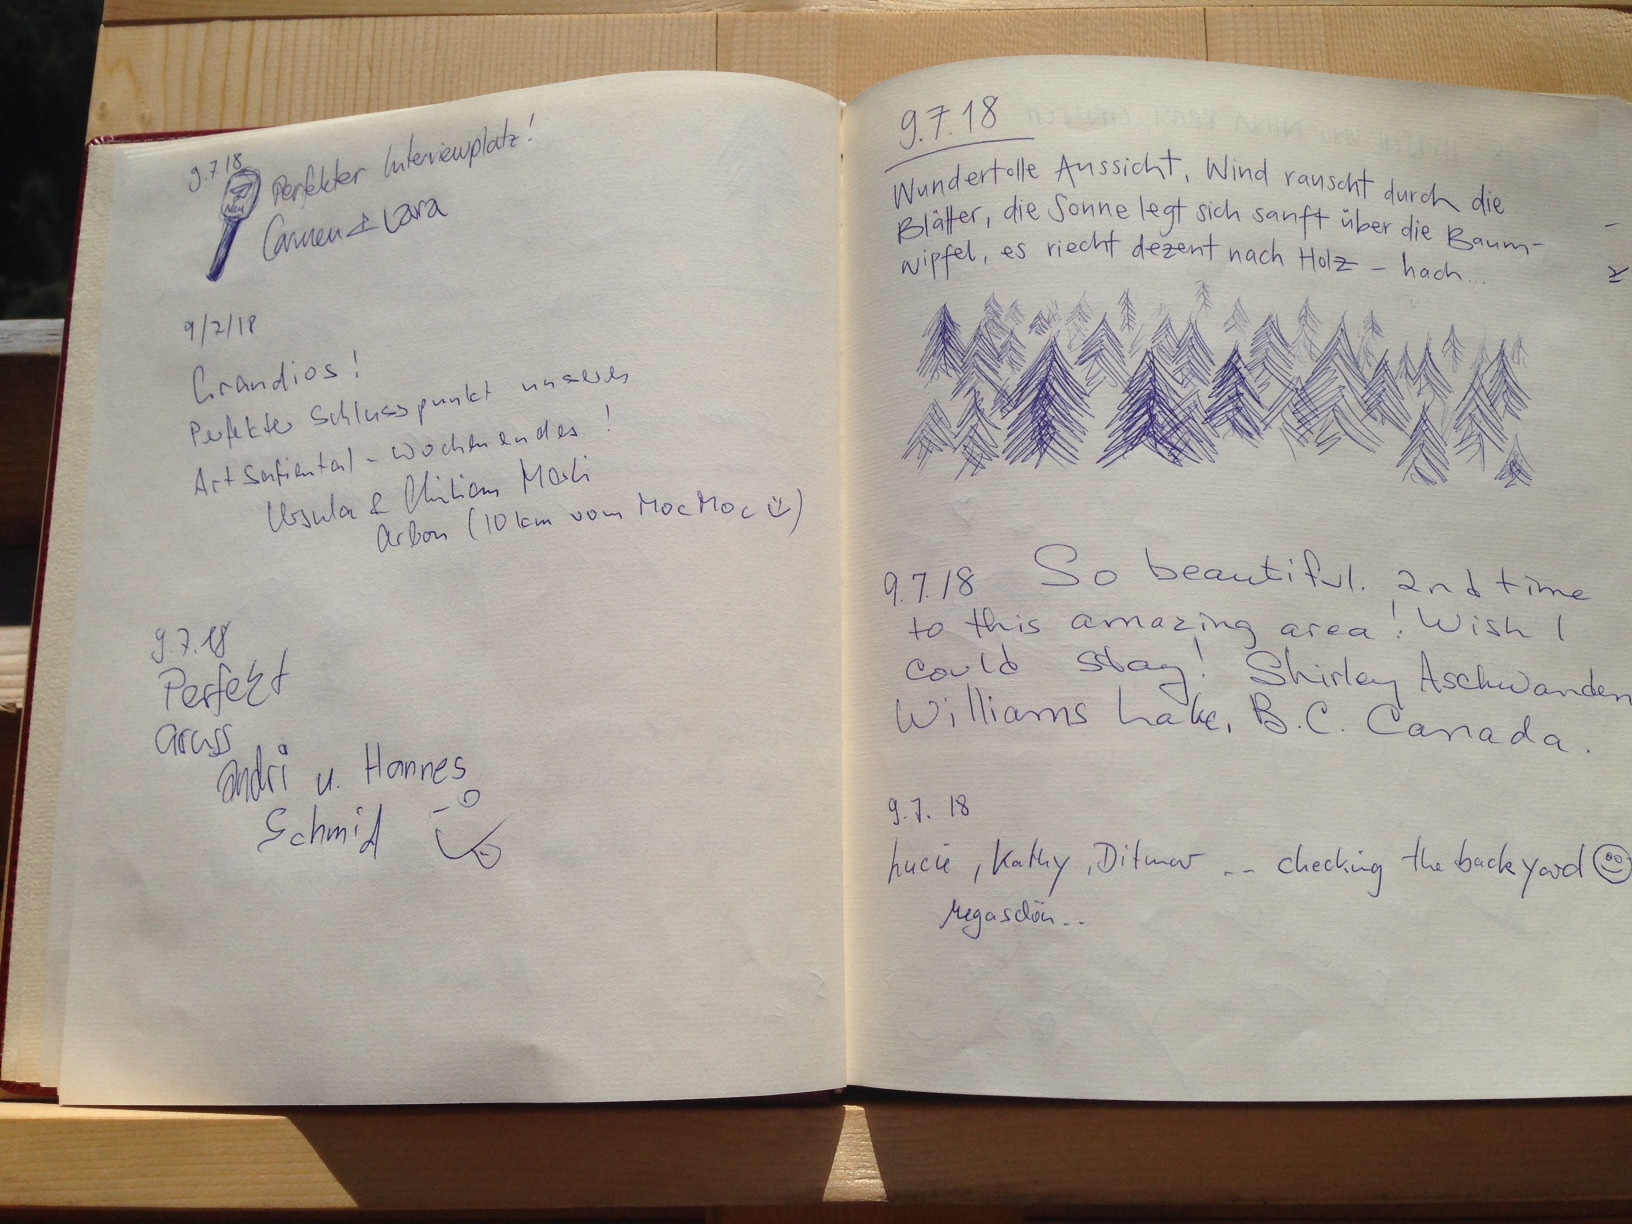 9.7.18
Perfekter Interviewplatz!
Carmen & Lara
9/7/18
Grandios!
Perfekter Schlusspunkt unseres
Art Safiental-Wochenendes!
Ursula & Christian
Arbon (10 km vom MocMoc
9.7.18
Perfekt
Gruss
Andri u. Hannes
Schmid
9.7.18
Wundertolle Aussicht, Wind rauscht durch die
Blätter, die Sonne legt sich sanft über die Baum-
wipfel, es riecht dezent nach Holz – hach...
9.7.18 So beautiful. 2nd time
to this amazing area! Wish I
could stay! Shirley Aschwanden
Williams Lake, B.C. Canada.
9.7.18
Lucie, Kathy, Ditmar ... checking the backyard
Megaschön...